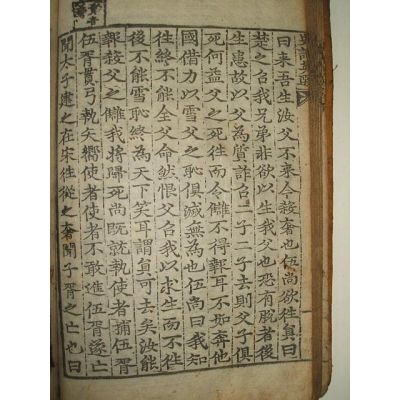 曰来吾生汝父不来今殺奢也伍尚欲徃員曰
楚之召我兄弟非欲以生我父也恐有脫者後
生患故以父為質詐召二子二子去則父子俱
死何益父之死徃而令讎不得報耳不如奔他
國借力以雪父之恥俱滅無為也伍尚曰我知
徃終不能全父命然恨父召我以求生而不徃
後不能雪恥終為天下笑耳謂員可去矣汝能
報殺父之讎我將歸死尚既就執使者捕伍胥
伍胥貫弓執矢嚮使者使者不敢進伍胥遂亡
聞太子建之在宋徃從之奢聞子胥之亡也曰